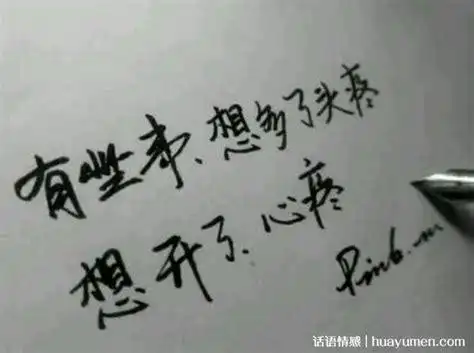 有些事、想多了头疼
想开了、心疼
话语情感 | huayumen.com